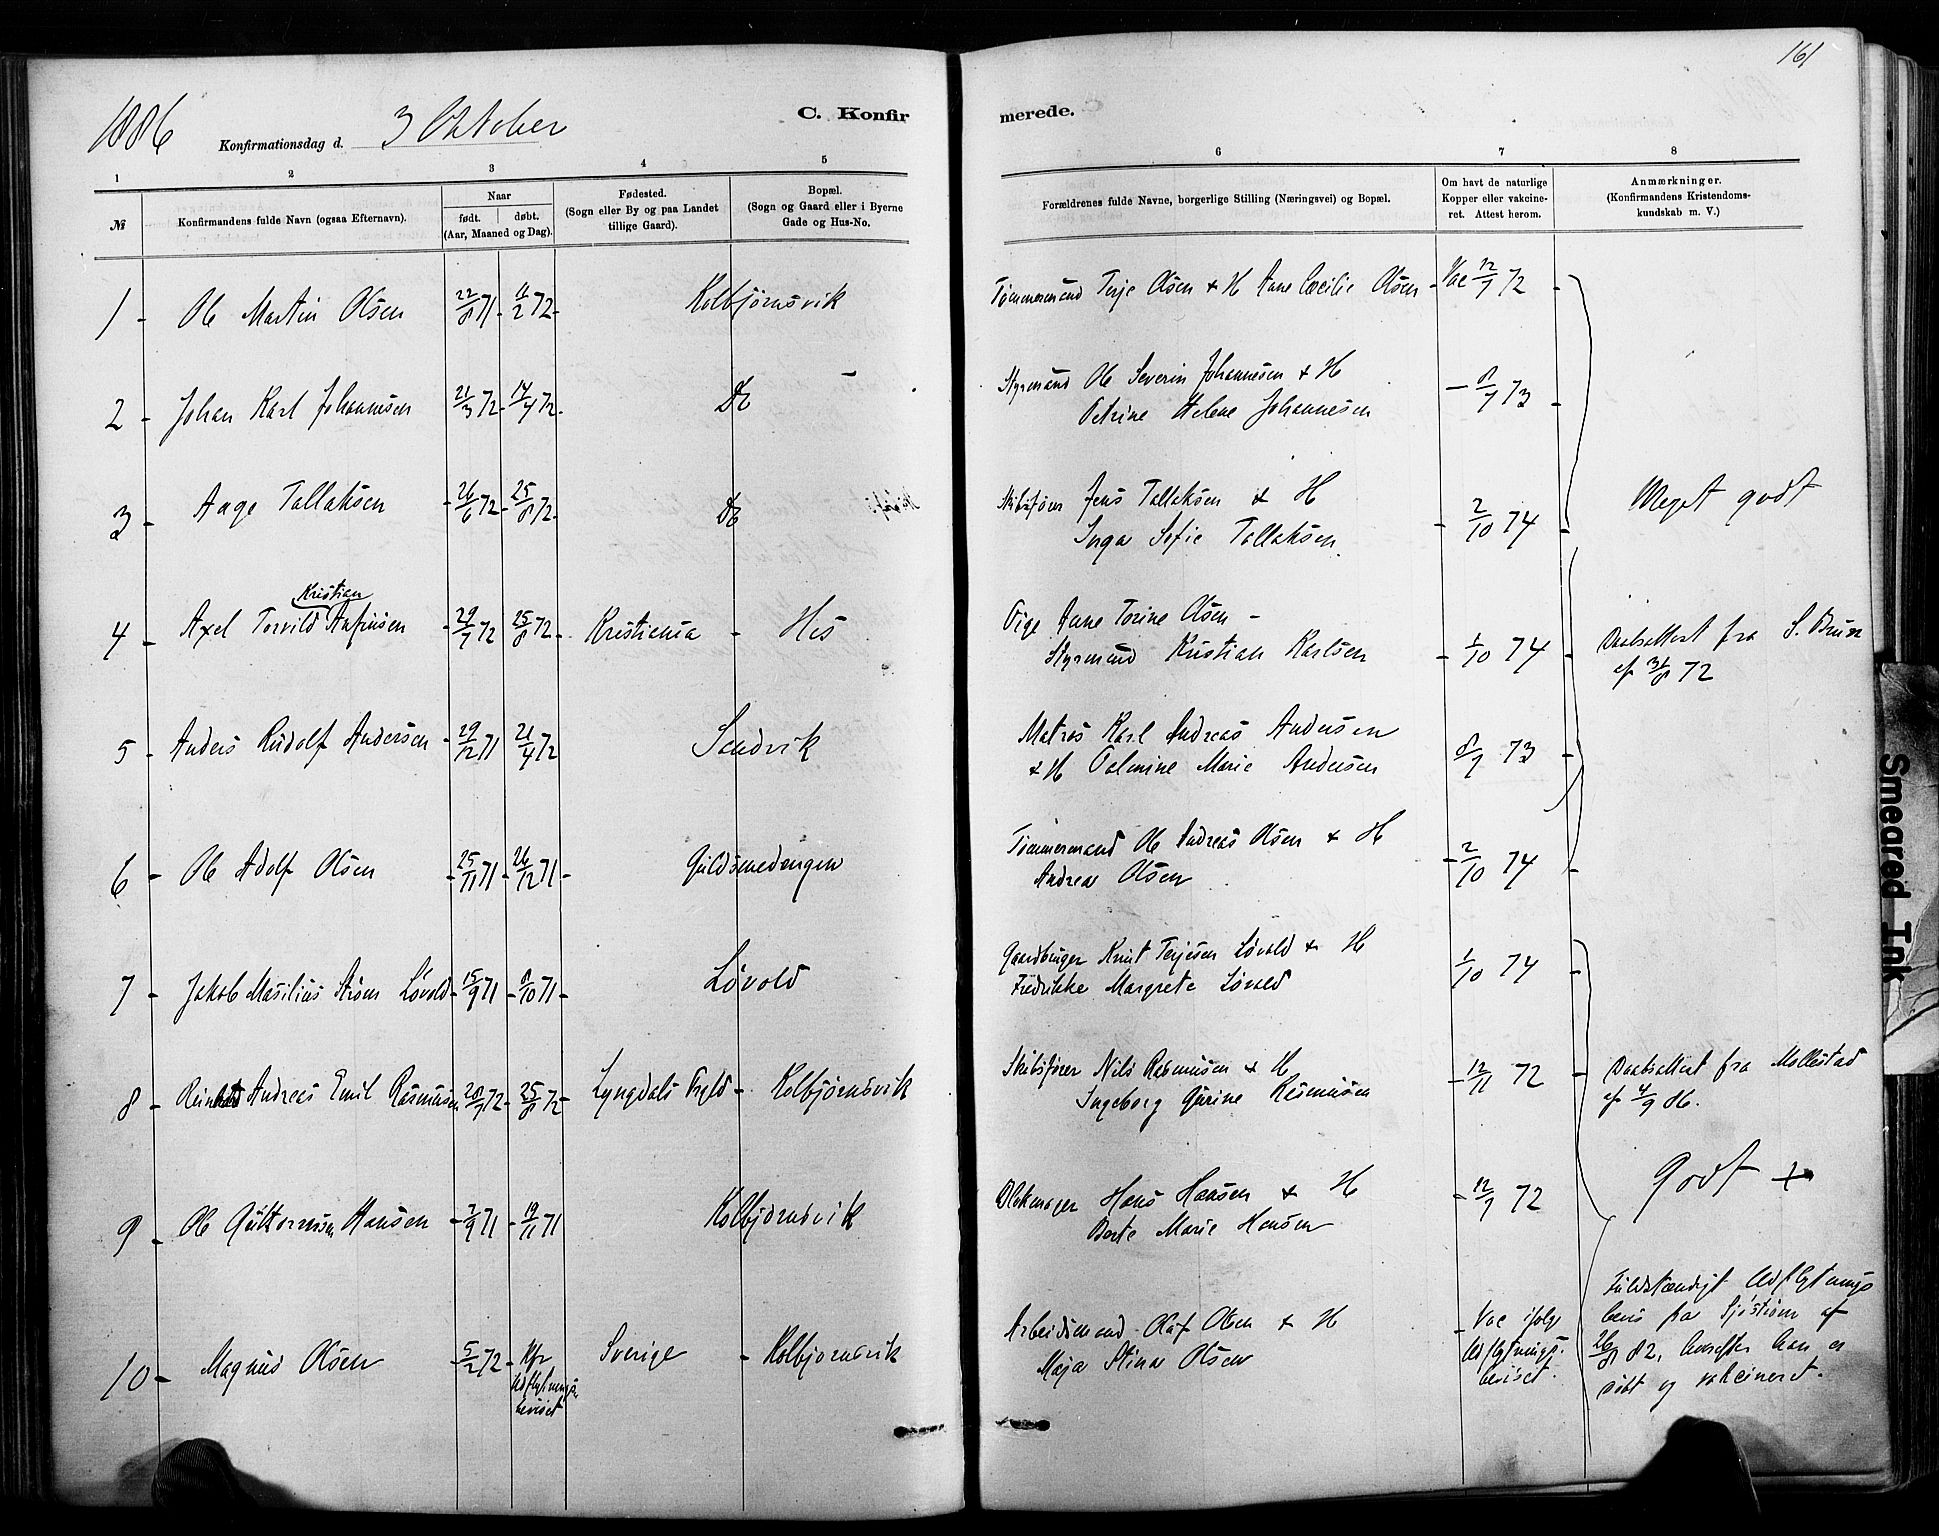 161
1886
Konfirmationsdag d. 3 Oktober
C. Konfirmerede.
1 2 3 4 5 6 7 8
№
Konfirmandens fulde Navn (ogsaa Efternavn).
Naar
født. døbt.
(Aar, Maaned og Dag).
Fødested.
(Sogn eller By og paa Landet
tillige Gaard).
Bopæl.
(Sogn og Gaard eller i Byerne
Gade og Hus-No.
Forældrenes fulde Navne, borgerlige Stilling (Næringsvei) og Bopæl.
Om havt de naturlige
Kopper eller vakcine-
ret. Attest herom.
Anmærkninger.
(Konfirmandens Kristendoms-
kundskab m. V.)
1 - Ole Martin Olsen 22/8 71 - 11/2 72 - Kolbjörnsvik Tømmermand Terje Olsen + H Anne Cecilie Olsen - Vac 12/7 72 -
2 - Johan Karl Johannesen 21/3 72 - 14/4 72 - Do - Styrmand Ole Severin Johannesen + H
Petrine Helene Johannesen - 8/7 73 -
3 - Aage Tallaksen - 26/6 72 - 25/8 72 - Do Skibsfører Jens Tallaksen + H
Inga Sofie Tallaksen - 2/10 74 - Meget godt
4 - Axel Torvild Kristian Anfinsen - 29/7 72 - 25/8 72 - Kristiania - His Pige Anne Torine Olsen -
Styrmand Kristian Karlsen - 1/10 74 - Daabsattest fra S. Bruun
af 31/8 72
5 - Anders Rudolf Andersen - 29/12 71 - 21/4 72 Sandvik Matros Karl Andreas Andersen
+ H Palmine Marie Andersen 8/7 73 -
6 - Ole Adolf Olsen - 25/11 71 - 26/12 71 - Guldsmedengen Tømmermand Ole Andreas Olsen + H
Andrea Olsen - 2/10 74 -
7 - Jakob Masilius Strøm Løvold - 15/9 71 - 8/10 71 - Løvold Gaardbruger Knut Terjesen Løvold + H
Fredrikke Margrete Løvold 1/10 74 -
8 - Andreas Emil Rasmusen 20/7 72 - 25/8 72 - Lyngdals - Kolbjørnsvik Skibsfører Nils Rasmusen + H
Ingeborg Gurine Rasmusen - 12/11 72 - Daabsattest fra Mollestad
af 4/9 86.
9 - Ole Guttormsen Hansen - 7/9 71 - 19/11 71 Kolbjornsvik Hans Hansen + H
Berte Marie Hansen - 12/7 72 - Godt +
10 - Magnus Olsen - 5/2 72 - Kfr
Udflytnings-
beviset Sverige - Kolbjornsvik Arbeidsmand Olaf Olsen + H
Maja Stina Olsen - Vac ifølge
Udflytnings-
beviset. Fuldstændigt Udflytnings
bevis fra af
26/8 82, hvorefter han er
døbt og vakcineret.
Smeared Ink